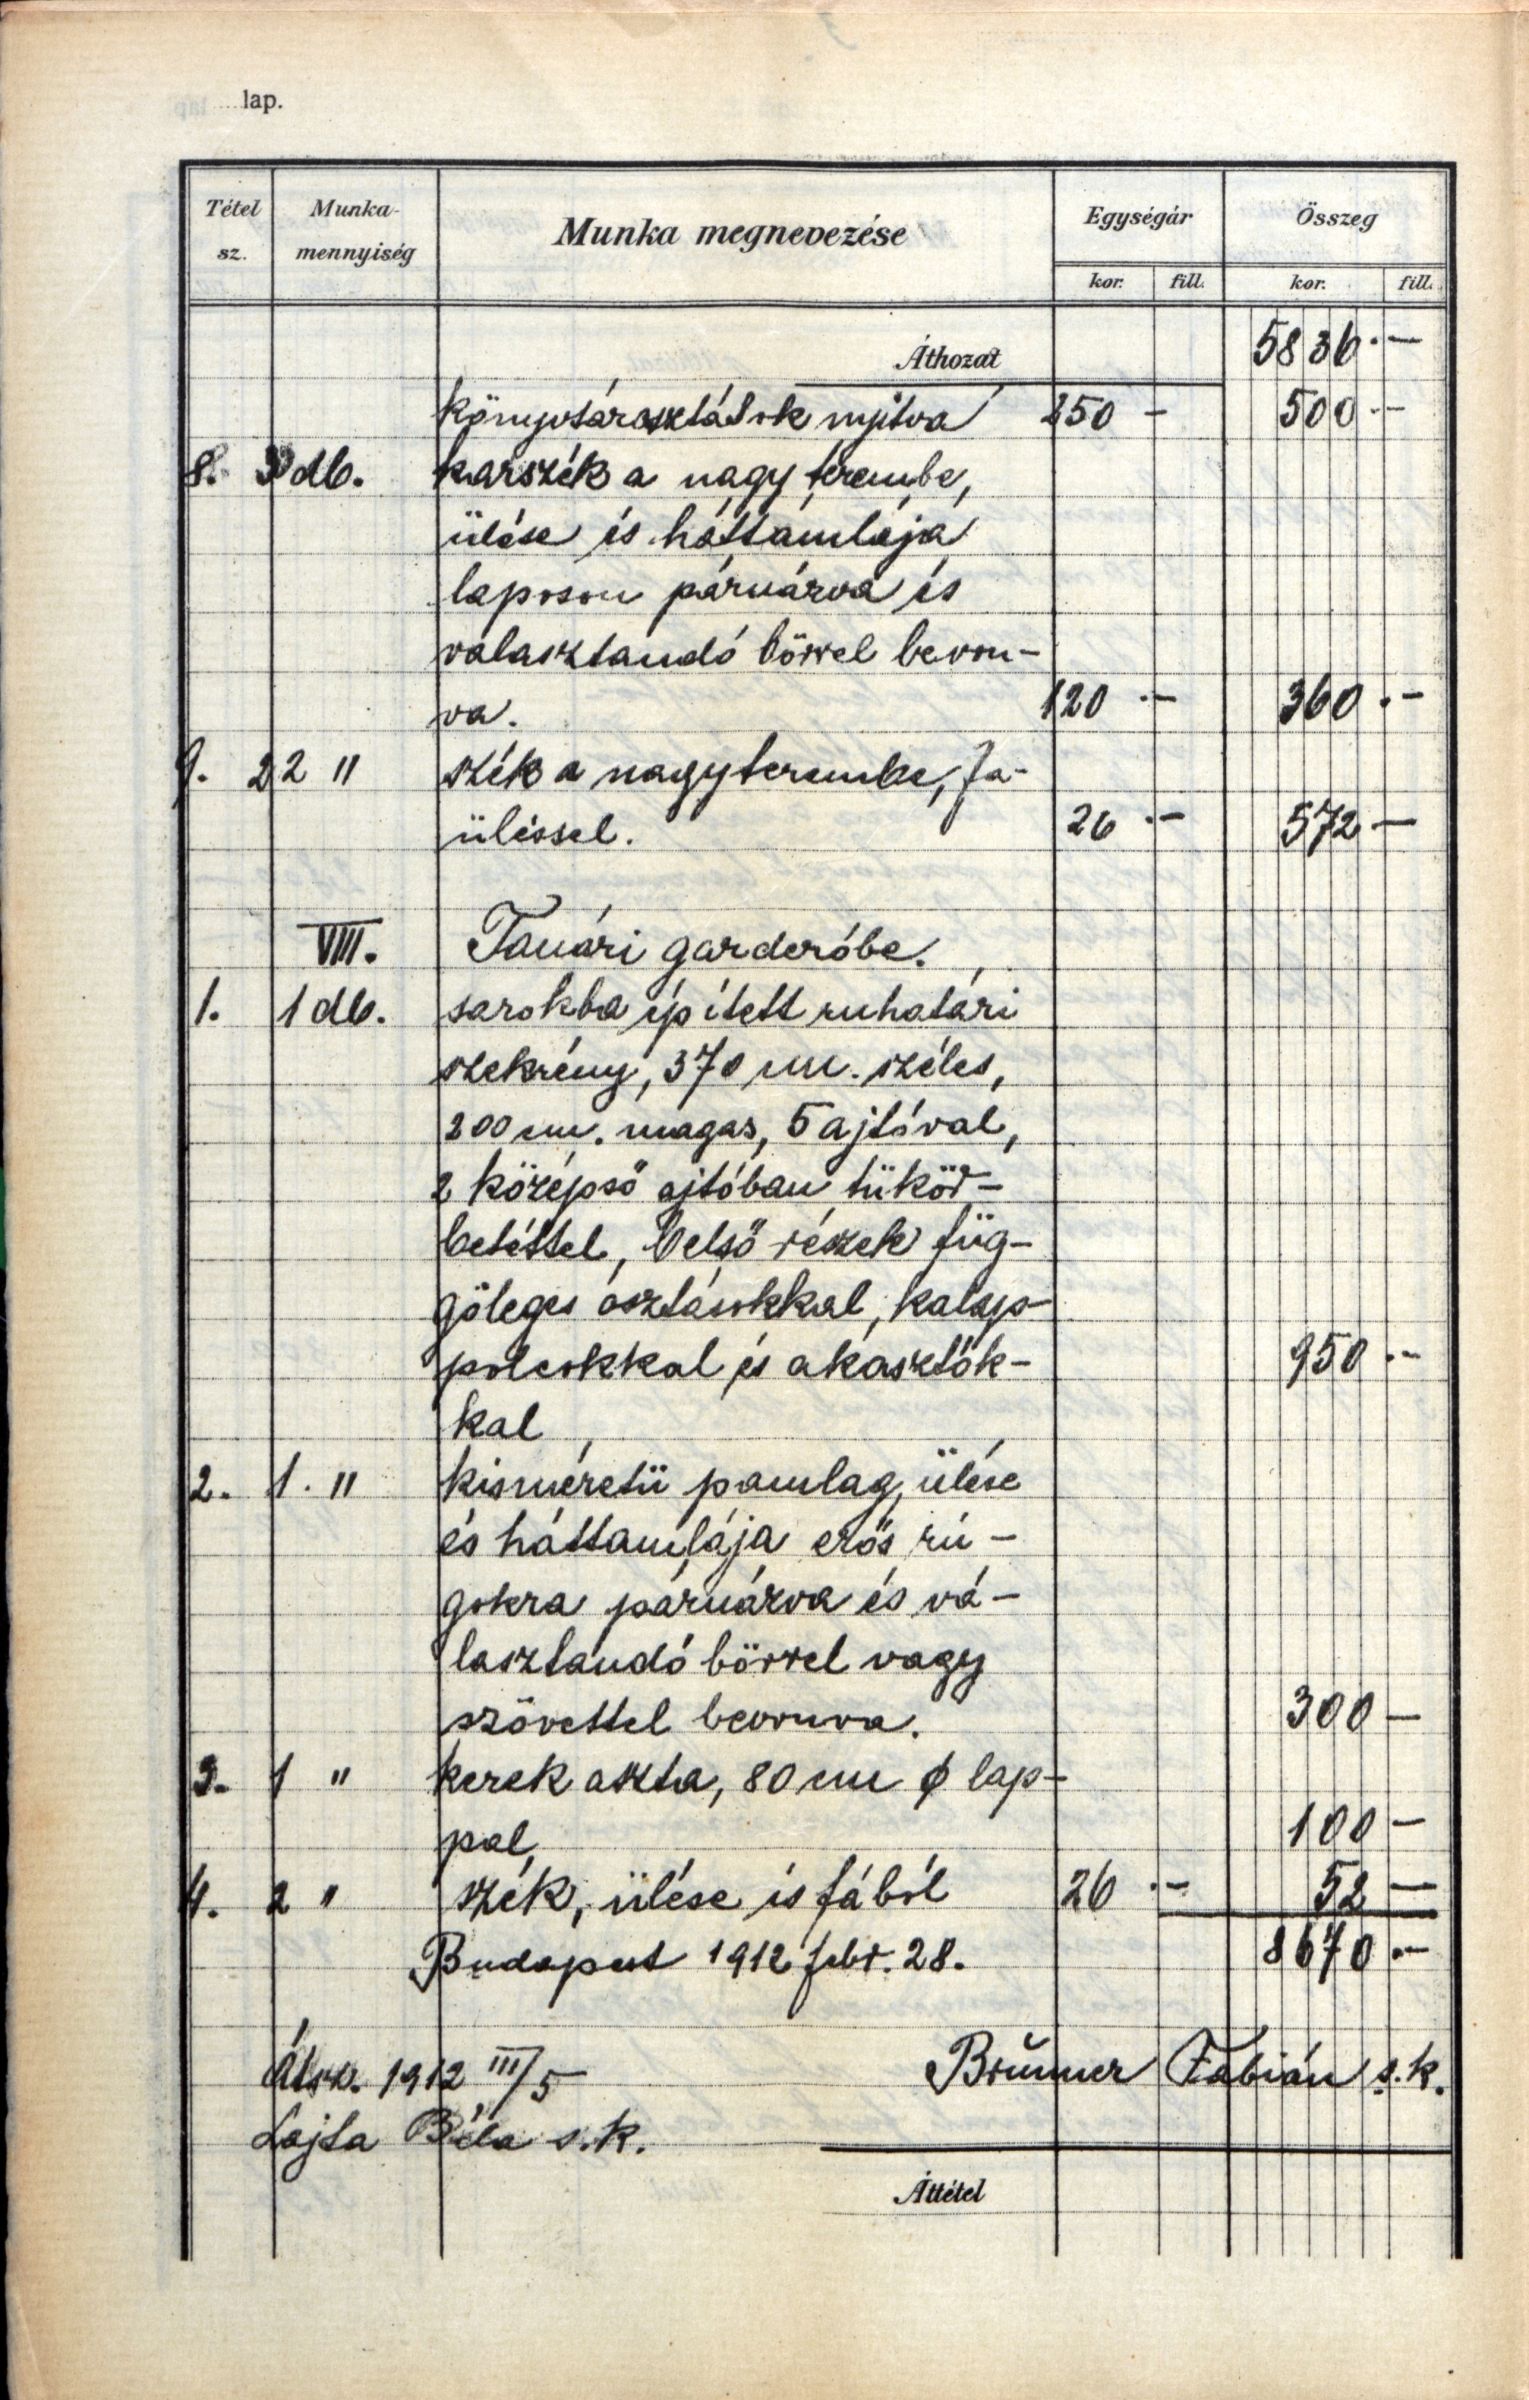 lap.
Tétel sz. Munkamennyiség Munka megnevezése Egységár Összeg
kor. fill. kor. fill.
Áthozat 5836.—
könyvtárosztások nyitva 250 — 500.—
8. 3 db. karszék a nagy terembe,
ülése és háttámlája
laposon párnázva és
választandó bőrrel bevon-
va. 120.— 360.—
9. 22 " szék a nagyterembe, fa-
üléssel. 26.— 572—
VIII. Tanári garderóbe.
1. 1 db. sarokba épített ruhatári
szekrény, 370 cm. széles,
200 cm. magas, 5 ajtóval,
2 középső ajtóban tükör-
betéttel, belső részek füg-
gőleges osztásokkal, kalap-
polcokkal és akasztók-
kal 950.—
2. 1. " kisméretü pamlag, ülése
és háttámlája erős rú-
gokra párnázva és vá-
lasztandó bőrrel vagy
szövettel bevonva. 300—
3. 1 " kerek aszta, 80 cm ϕ lap-
pal, 100—
4. 2 " szék, ülése is fából 26.— 52—
Budapest 1912 febr. 28. 8670.—
Brünner Fábián s.k.
Átvv. 1912 III/5
Lajta Béla s.k.
Áttétel